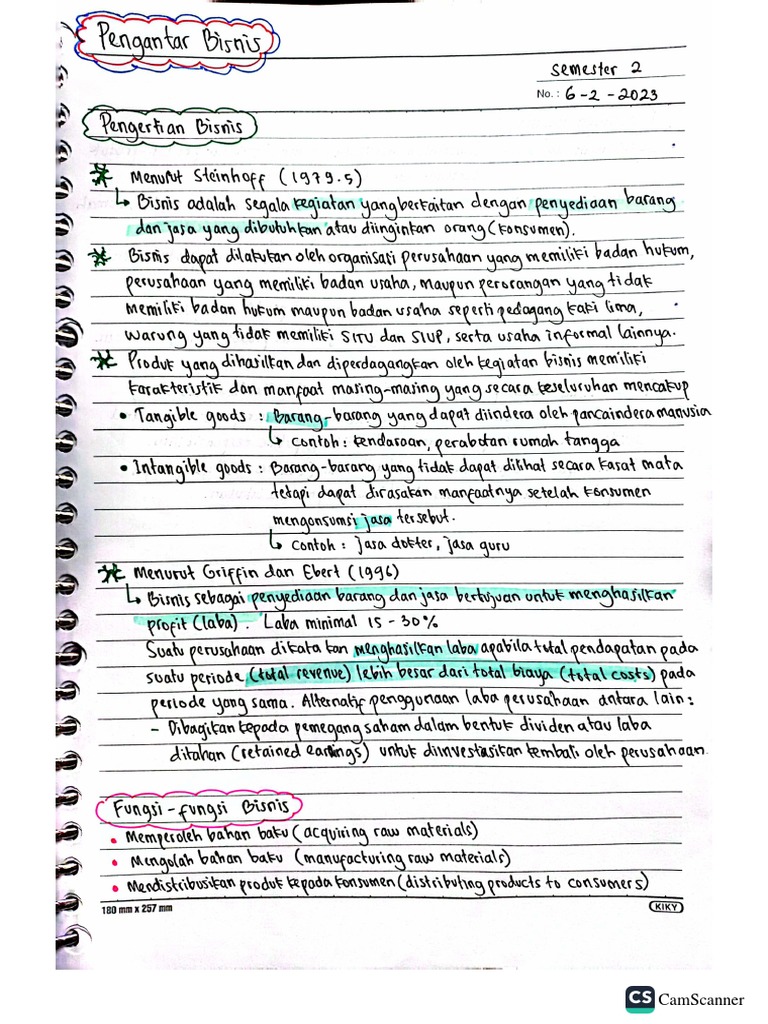 Pengantar Bisnis
Semester 2
No.: 6-2-2023
Pengertian Bisnis
* Menurut Steinhoff (1979.5)
↳ Bisnis adalah segala kegiatan yang berkaitan dengan penyediaan barang
dan jasa yang dibutuhkan atau diinginkan orang (konsumen).
* Bisnis dapat dilakukan oleh organisasi perusahaan yang memiliki badan hukum,
perusahaan yang memiliki badan usaha, maupun perorangan yang tidak
memiliki badan hukum maupun badan usaha seperti pedagang kaki lima,
warung yang tidak memiliki SITU dan SIUP, serta usaha informal lainnya.
* Produk yang dihasilkan dan diperdagangkan oleh kegiatan bisnis memiliki
karakteristik dan manfaat masing-masing yang secara keseluruhan mencakup
• Tangible goods : Barang-barang yang dapat diindera oleh pancaindera manusia
↳ contoh : kendaraan, perabotan rumah tangga
• Intangible goods : Barang-barang yang tidak dapat dilihat secara kasat mata
tetapi dapat dirasakan manfaatnya setelah konsumen
mengonsumsi jasa tersebut.
↳ contoh : jasa dokter, jasa guru
* Menurut Griffin dan Ebert (1996)
↳ Bisnis sebagai penyediaan barang dan jasa bertujuan untuk menghasilkan
profit (laba). Laba minimal 15 - 30%
Suatu perusahaan dikatakan menghasilkan laba apabila total pendapatan pada
suatu periode (total revenue) lebih besar dari total biaya (total costs) pada
periode yang sama. Alternatif penggunaan laba perusahaan antara lain :
- Dibagikan kepada pemegang saham dalam bentuk dividen atau laba
ditahan (retained earnings) untuk diinvestasikan kembali oleh perusahaan.
Fungsi-fungsi Bisnis
• Memperoleh bahan baku (acquiring raw materials)
• Mengolah bahan baku (manufacturing raw materials)
• Mendistribusikan produk kepada konsumen (distributing products to consumers)
180 mm x 257 mm
KIKY
CS CamScanner